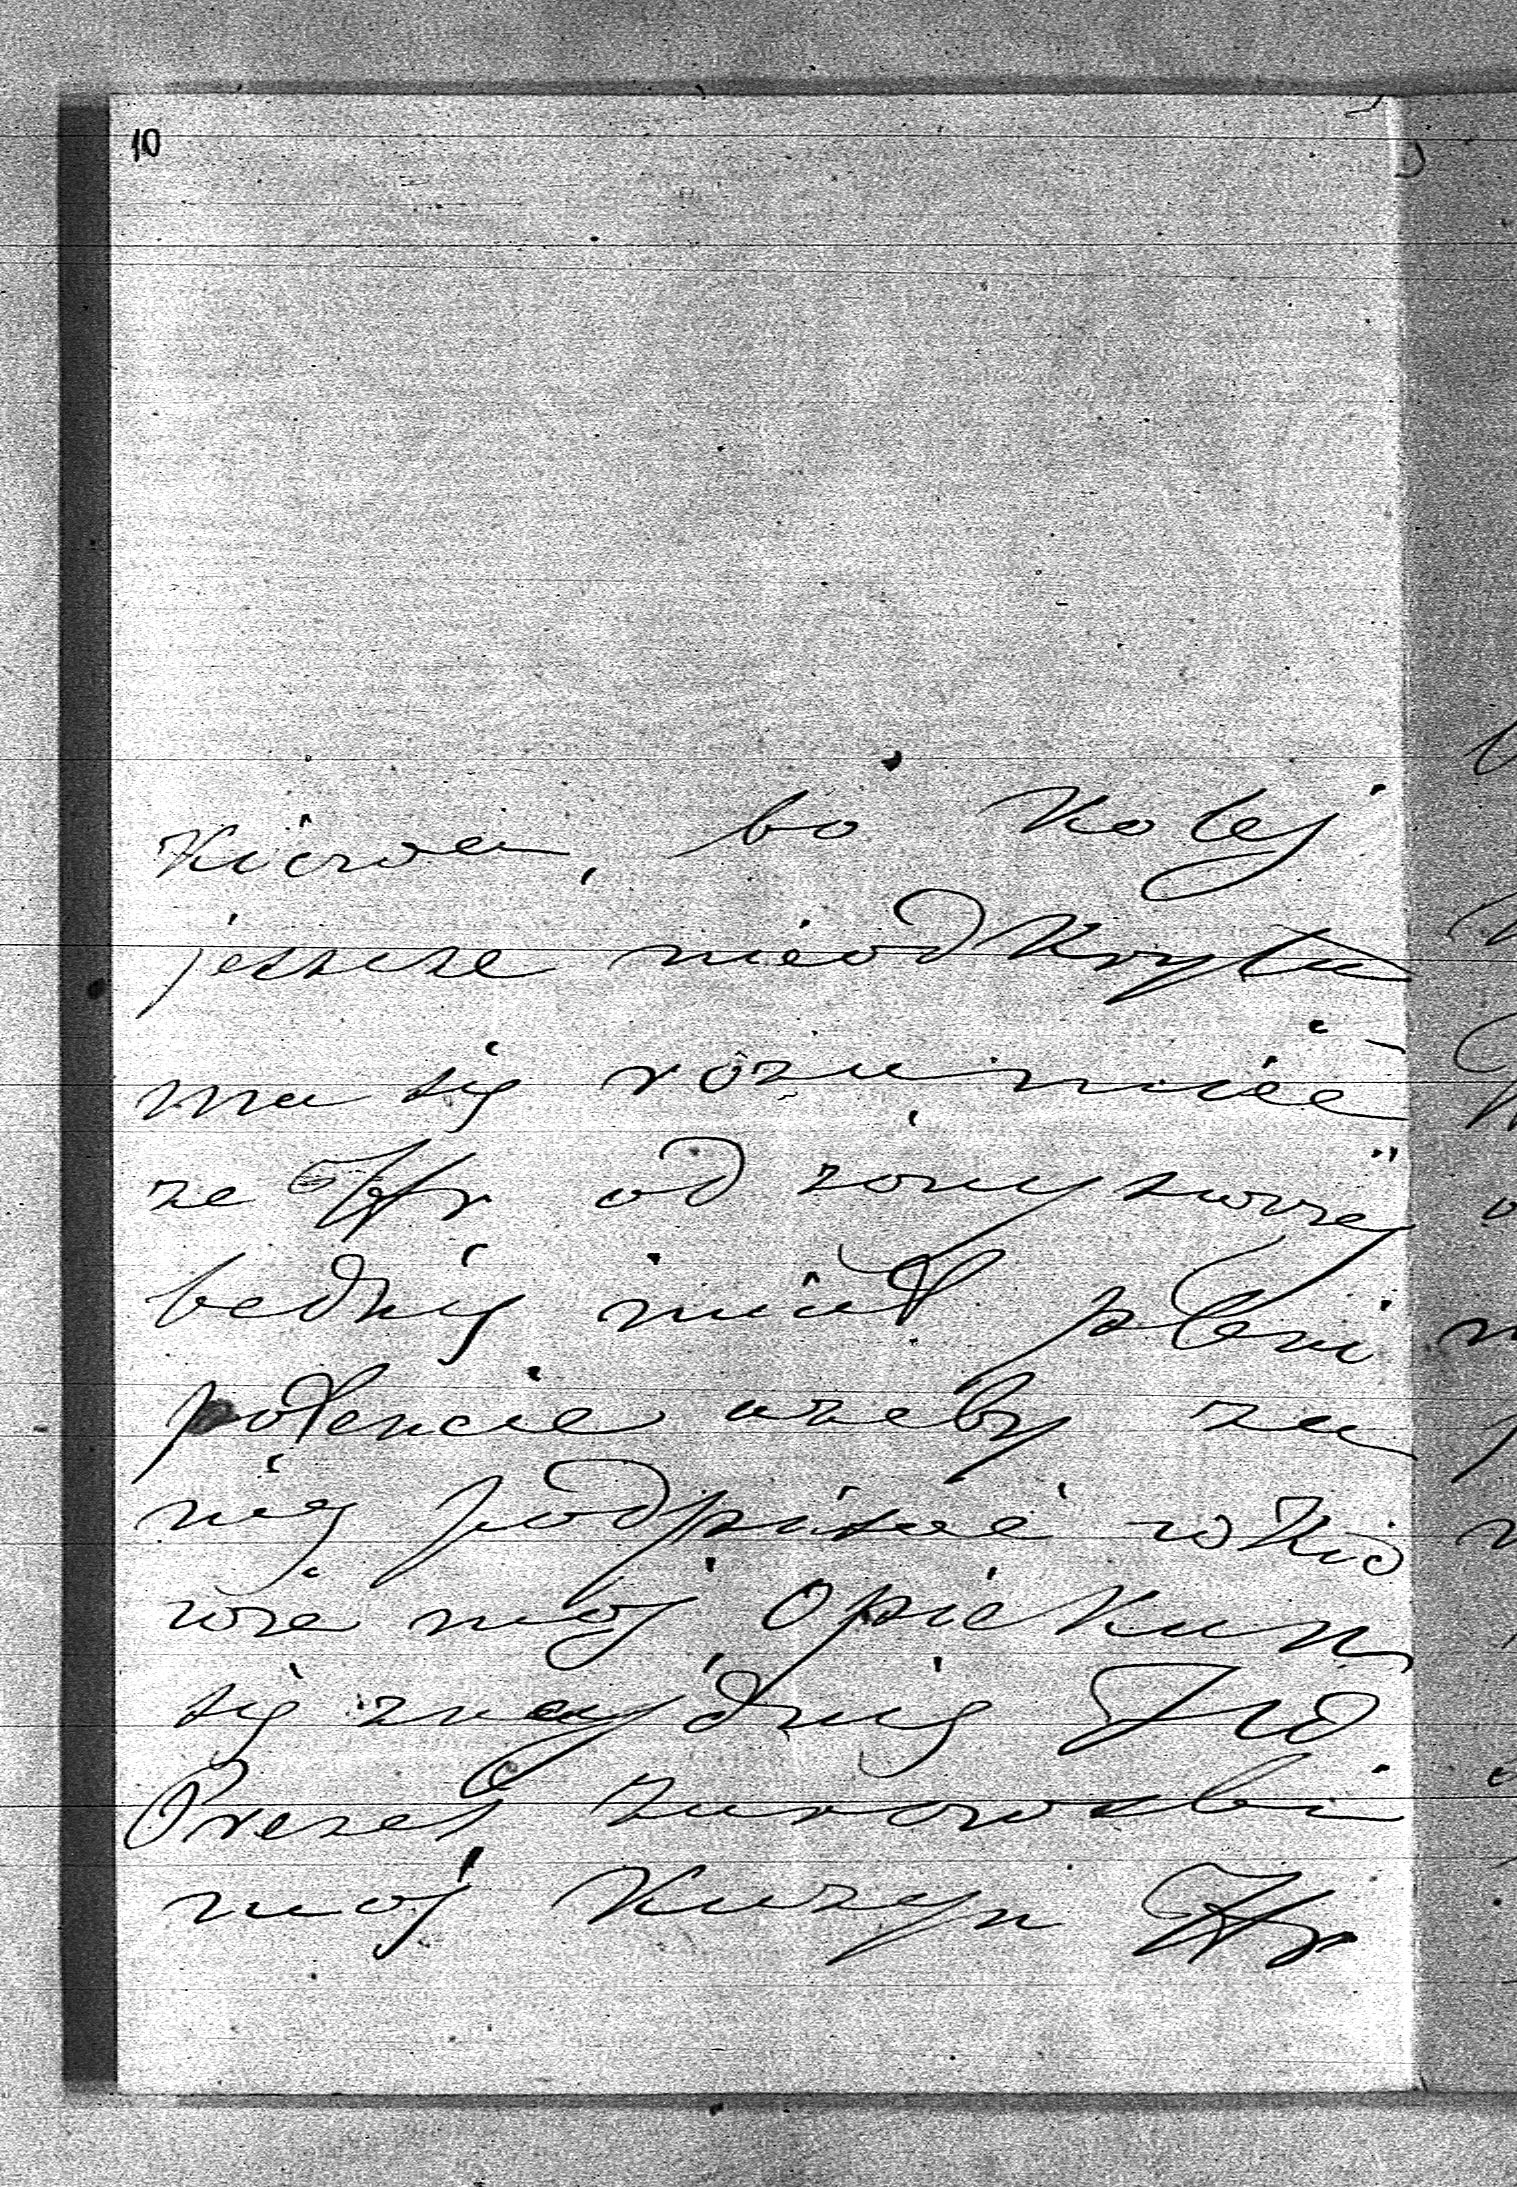 10
Kiowa, bo kolej
jeszcze nieodkryta
ma się rozumieć
ze Hr od zony swojej
bedzie miał pleni
potencie azeby za
nią podpisać w Kio
wie moj Opiekun
się znajdzie Hr
Prezes Zurowski
moj Kuzyn Hr